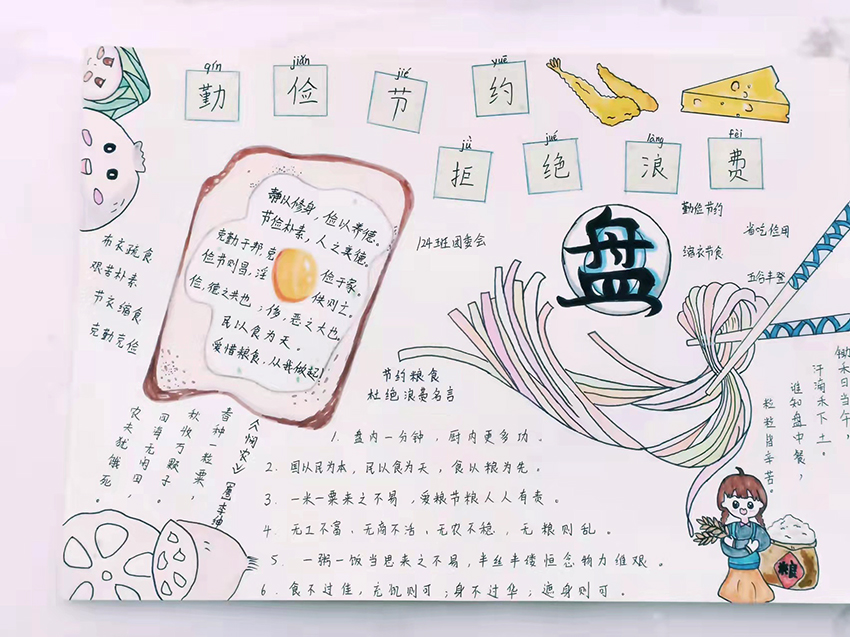 qín jiǎn jié yuē
勤 俭 节 约
jù jué làng fèi
拒 绝 浪 费
静以修身，俭以养德。
节俭朴素，人之美德。
克勤于邦，克俭于家。
俭节则昌，淫佚则亡。
俭，德之共也；侈，恶之大也
民以食为天。
爱惜粮食，从我做起！
124班团委会
盘
勤俭节约
省吃俭用
缩衣节食
五谷丰登
布衣疏食
艰苦朴素
节衣缩食
克勤克俭
节约粮食
杜绝浪费名言
1. 盘内一分钟，厨内更多功。
2. 国以民为本，民以食为天，食以粮为先。
3. 一米一粟来之不易，爱粮节粮人人有责。
4. 无工不富、无商不活、无农不稳，无粮则乱。
5. 一粥一饭当思来之不易，半丝半缕恒念物力维艰。
6. 食不过佳，充饥则可；身不过华；遮身则可。
《悯农》【唐】李绅
春种一粒粟，
秋收万颗子。
四海无闲田，
农夫犹饿死。
锄禾日当午，
汗滴禾下土。
谁知盘中餐，
粒粒皆辛苦。
粮